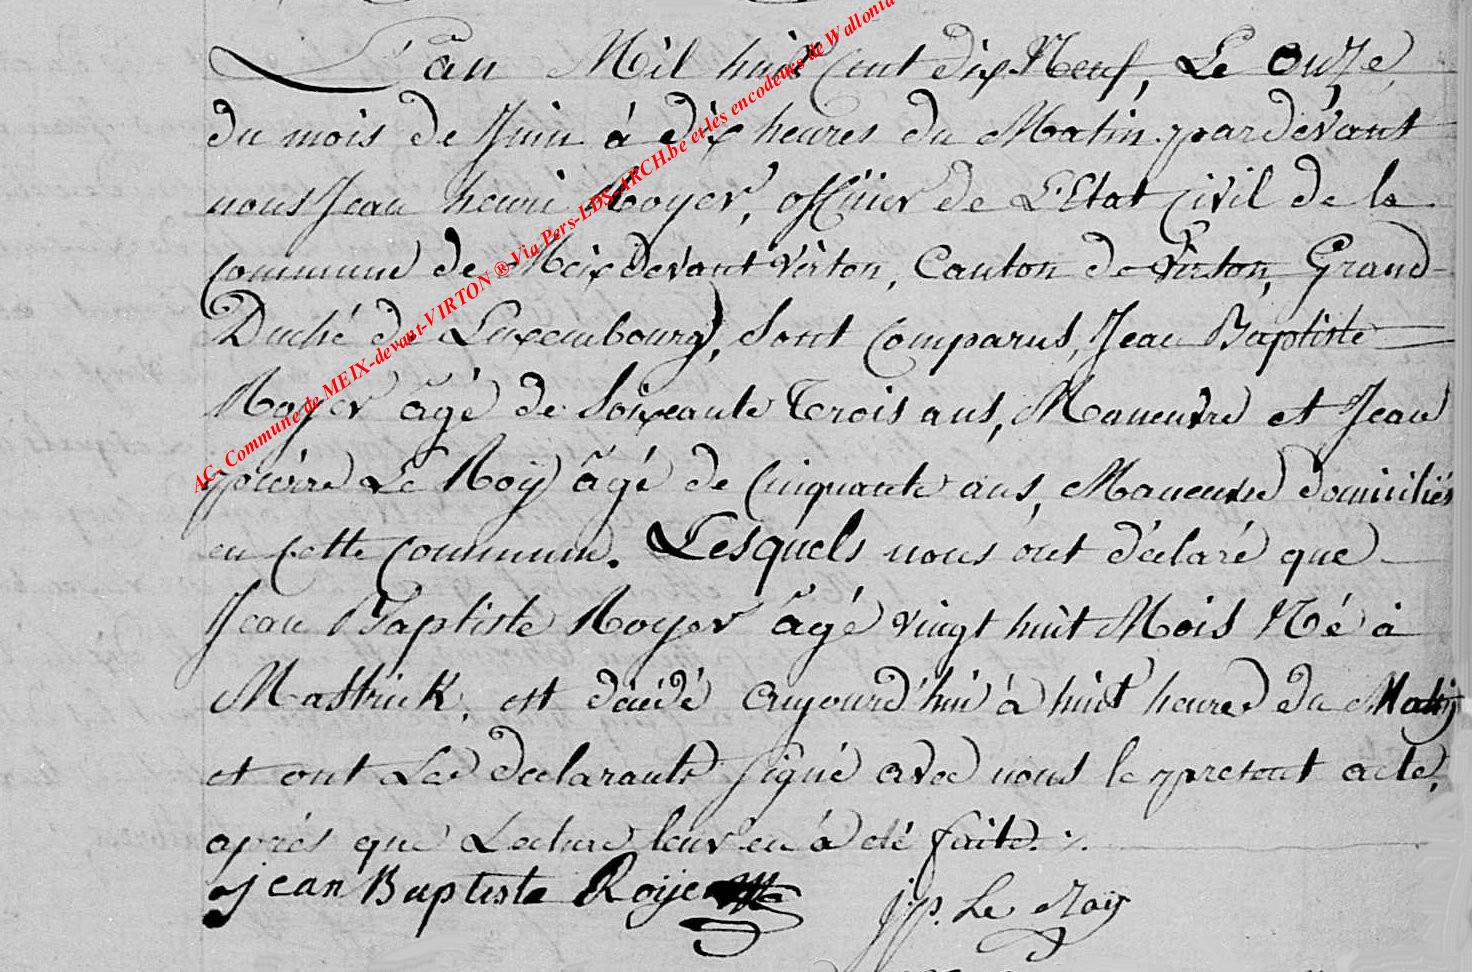 L'an Mil huit Cent dix Neuf, Le Onze
du mois de Juin à dix heures du Matin pardévant
nous Jean henri Royer, officier de L'Etat Civil de la
commune de Meix devant virton, Canton de Virton, Grand
Duché de Luxembourg, sont Comparus, Jean Baptiste
Royer âgé de soixante trois ans, Maneuvre et Jean
pierre Le Roÿ âgé de Cinquante ans, Maneuvre domiciliés
en cette commune. Lesquels nous ont déclaré que
Jean Baptiste Royer âgé vingt huit Mois Né à
Mastrick, est décédé aujourd'hui à huit heures du Matin
et ont Les declarants signé avec nous le present acte,
aprés que Lecture leur en à été faite.
jean Baptiste Roije
jp. Le Roÿ
AC. Commune de MEIX-devant-VIRTON ® Via Pers-LDS-ARCH.be et les encodeurs de Wallonia